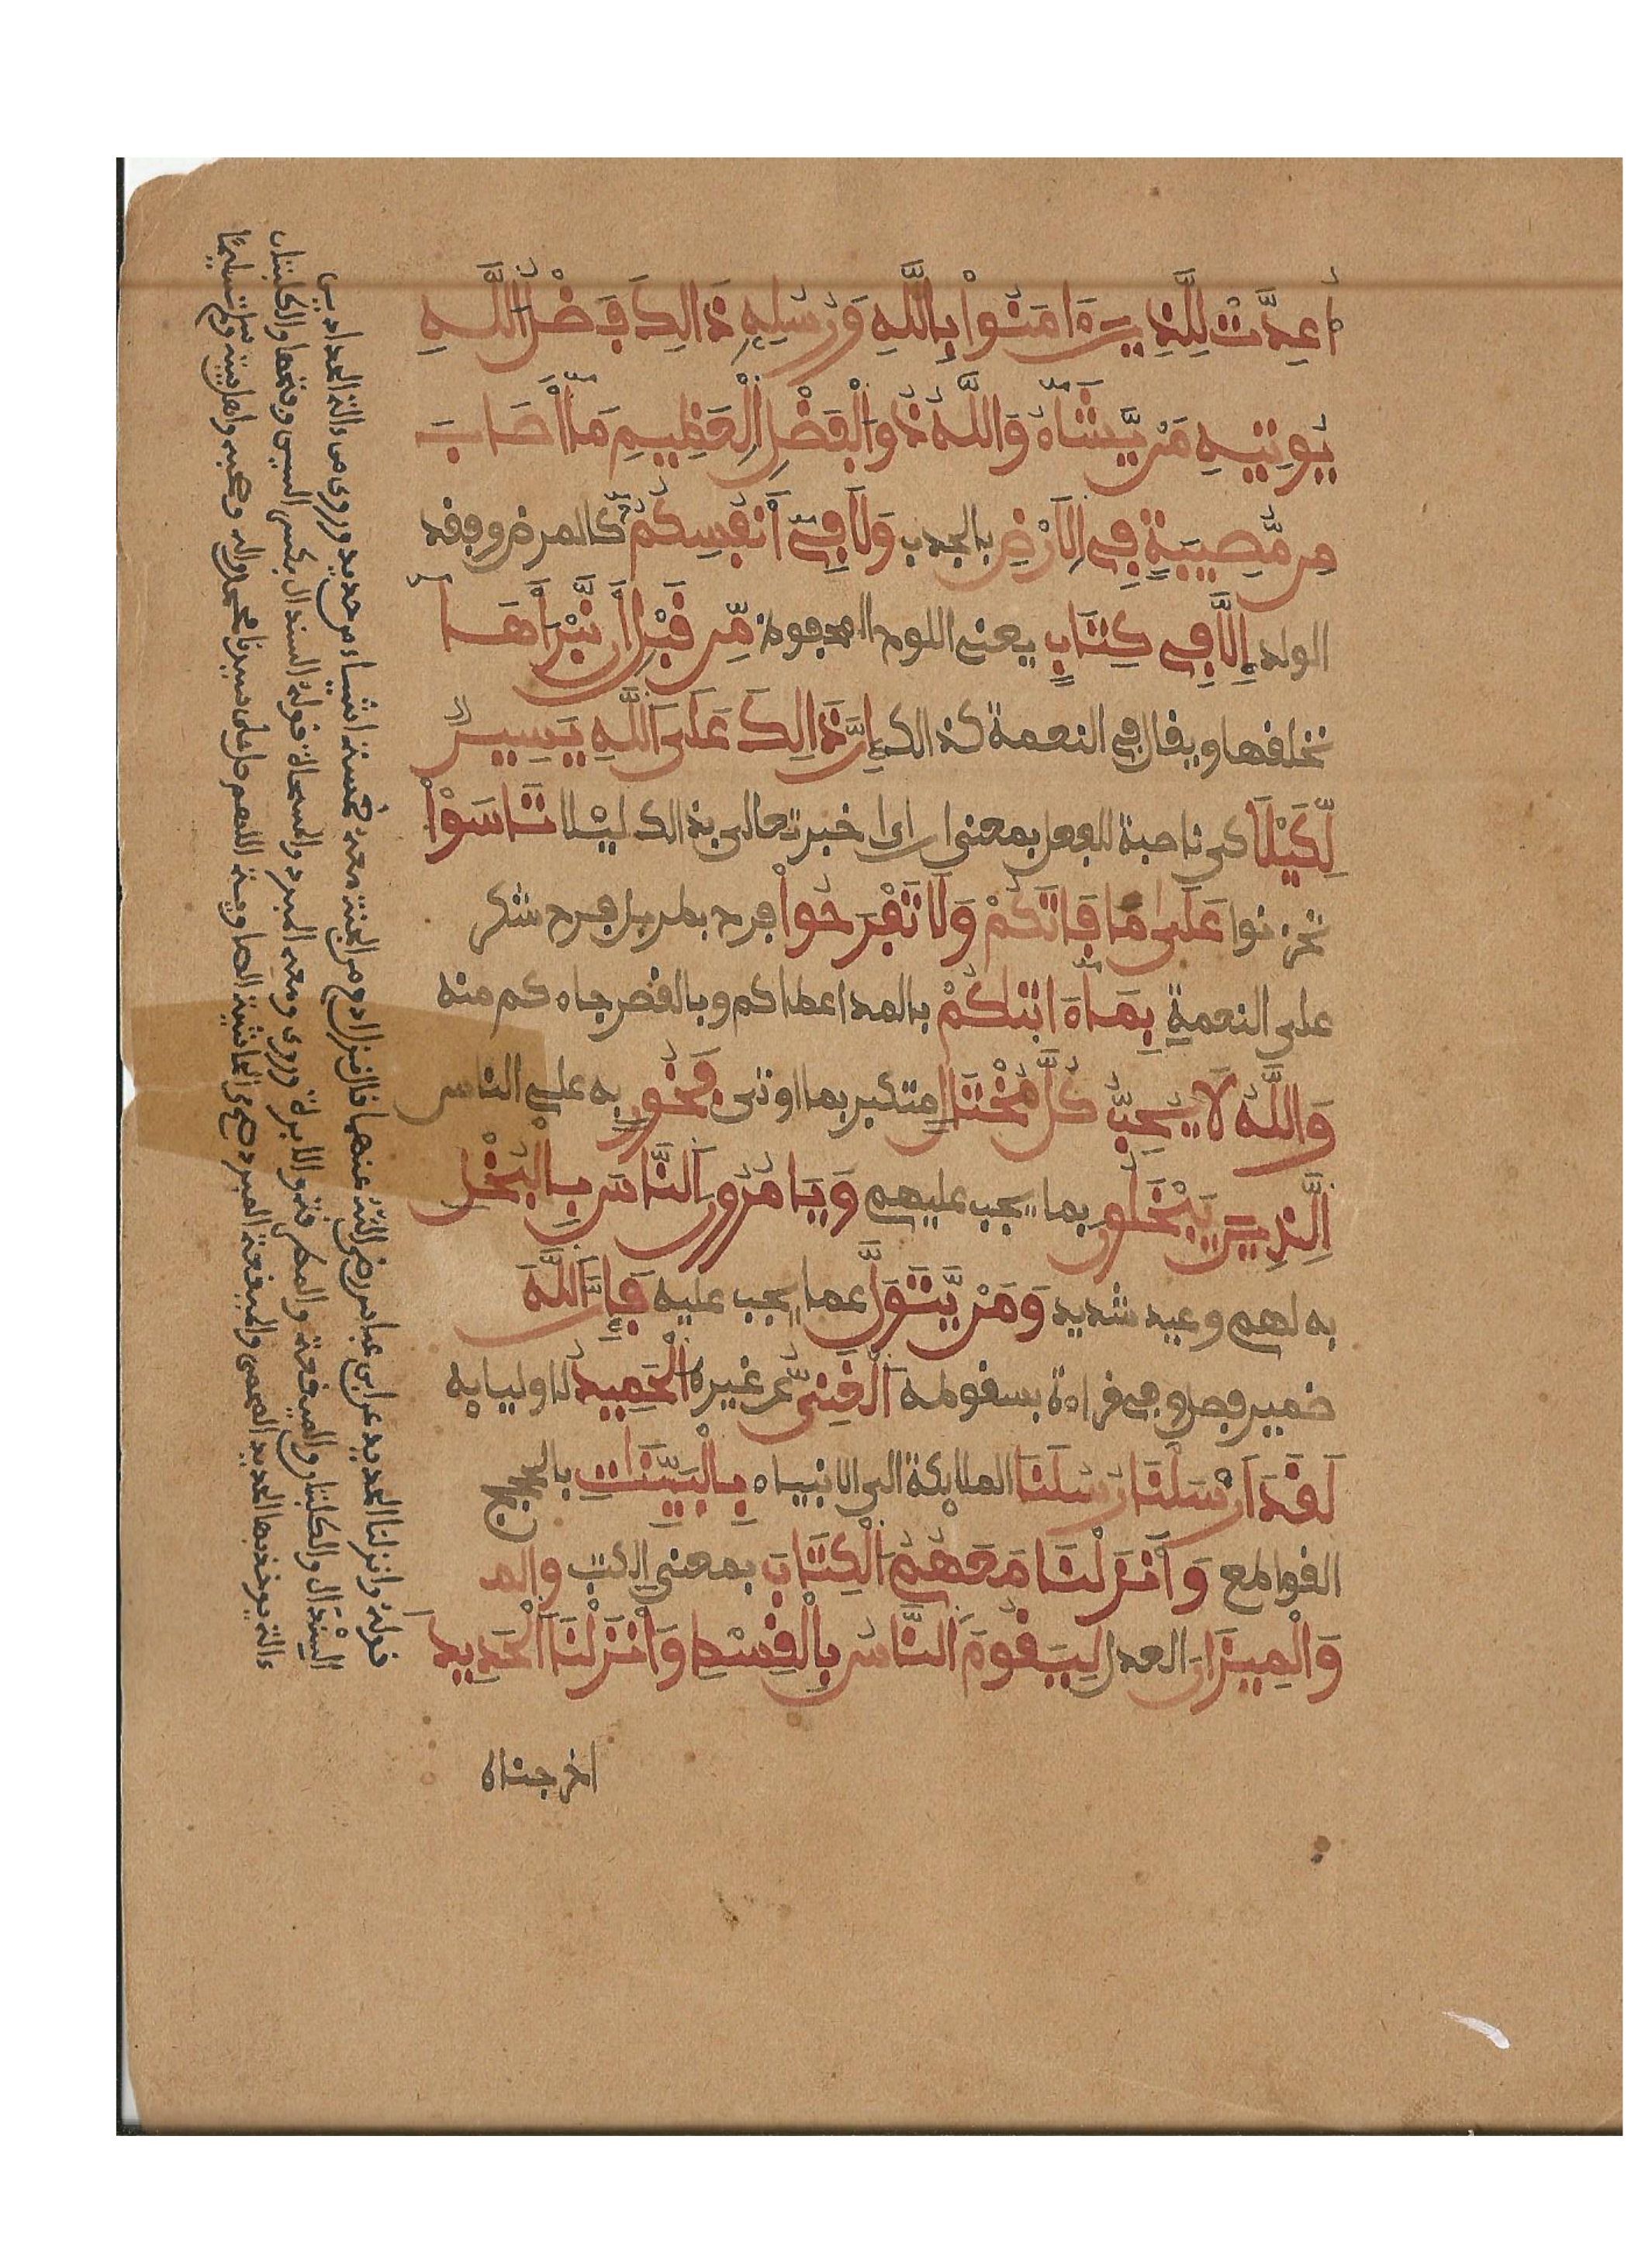 أُعِدَّتْ لِلَّذِينَ ءَامَنُواْ بِاللَّهِ وَرُسُلِهِ ذَالِكَ فَضْلُ اللَّهِ
يُوتِيهِ مَنْ يَّشَآءُ وَاللَّهُ ذُو الْفَضْلِ الْعَظِيمِ مَآ أَصَابَ
مِن مُّصِيبَةٍ فِي الَارْضِ بالجدب وَلَا فِيٓ أَنفُسِكُمُۥٓ كالمرض وفقد
الولد إِلَّا فِي كِتَابٍ يعنى اللوح المحفوظ مِّن قَبْلِ أَن نَّبْرَأَهَا
نخلقها ويقال في النعمة كذالك إِنَّ ذَالِكَ عَلَى اللَّهِ يَسِيرٌ
لِّكَيْلَا كي ناصبة للفعل بمعنى ان اي اخبر تعالى بذالك ليلا تَاسَوْاْ
تحزنوا عَلَىٰ مَا فَاتَكُمْ وَلَا تَفْرَحُواْ فرح بطر بل فرح شكر
على النعمة بِمَآ ءَاتَىٰكُمْ بالمد اعطاكم وبالقصر جاءكم منه
وَاللَّهُ لَا يُحِبُّ كُلَّ مُخْتَالٍ متكبر بما اوتى فَخُورٍ به على الناس
الَّذِينَ يَبْخَلُونَ بما يجب عليهم وَيَامُرُونَ النَّاسَ بِالْبُخْلِ
به لهم وعيد شديد وَمَنْ يَّتَوَلَّ عما يجب عليه فَإِنَّ اللَّهَ
ضمير فصل وفي قراءة بسقوطه الْغَنِيُّ عن غيره الْحَمِيدُ لاوليايه
لَقَدَ ارْسَلْنَا رُسُلَنَا الملايكة الى الانبياء بِالْبَيِّنَاتِ بالحجج
القواطع وَأَنزَلْنَا مَعَهُمُ الْكِتَابَ بمعنى الكتب
وَالْمِيزَانَ العدل لِيَقُومَ النَّاسُ بِالْقِسْطِ وَأَنزَلْنَا الْحَدِيدَ
اخرجناه
قوله وانزلنا الحديد عن ابن عباس رضي الله عنهما قال نزل ادم من الجنة معه خمسة اشياء من حديد وروى من ءالة الحدادين
السندال والكلبتان والميقعة والمطرقة والابرة وروى ومعه المبرد والمسحاة قوله السندال بكسر السين وفتحها والكلبتان
ءالة يوخذ بها الحديد المحمى والميقعة المبرد من الحاشية الصاوية اللهم صل على سيدنا محمد واله وصحبه وسلم تسليما